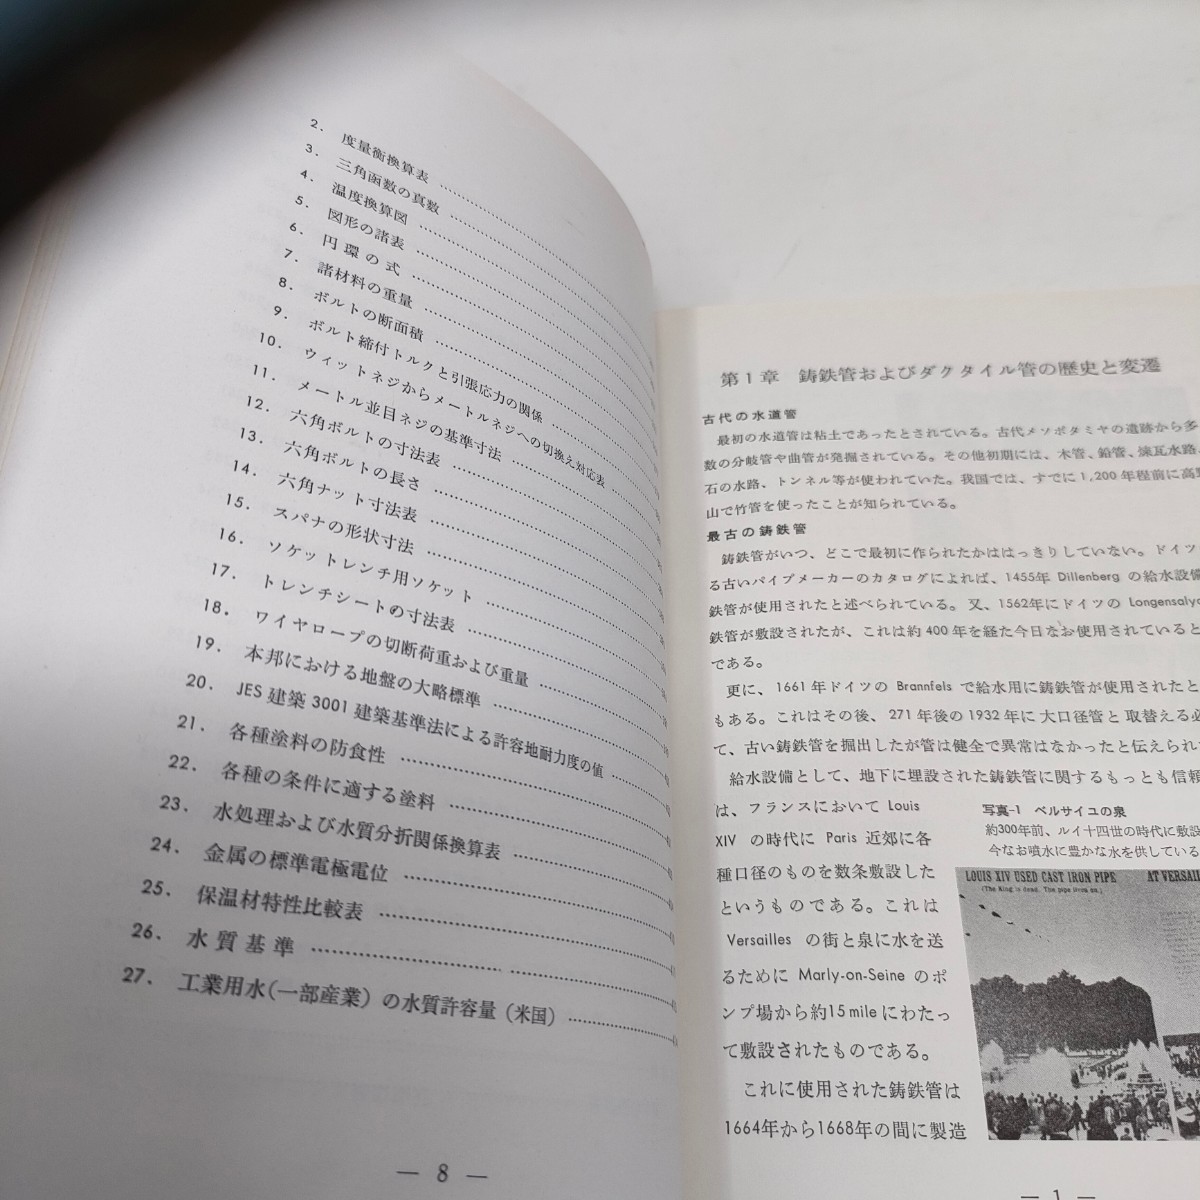 2. 度量衡換算表
3. 三角函数の真数
4. 温度換算図
5. 図形の諸表
6. 円環の式
7. 諸材料の重量
8. ボルトの断面積
9. ボルト締付トルクと引張応力の関係
10. ウィットネジからメートルネジへの切換え対応表
11. メートル並目ネジの基準寸法
12. 六角ボルトの寸法表
13. 六角ボルトの長さ
14. 六角ナット寸法表
15. スパナの形状寸法
16. ソケットレンチ用ソケット
17. トレンチシートの寸法表
18. ワイヤロープの切断荷重および重量
19. 本邦における地盤の大略標準
20. JES 建築 3001 建築基準法による許容地耐力度の値
21. 各種塗料の防食性
22. 各種の条件に適する塗料
23. 水処理および水質分折関係換算表
24. 金属の標準電極電位
25. 保温材特性比較表
26. 水質基準
27. 工業用水(一部産業)の水質許容量(米国)
— 8 —
第1章 鋳鉄管およびダクタイル管の歴史と変遷
古代の水道管
最初の水道管は粘土であったとされている。古代メソポタミヤの遺跡から多
数の分岐管や曲管が発掘されている。その他初期には、木管、鉛管、煉瓦水路、
石の水路、トンネル等が使われていた。我国では、すでに1,200年程前に高
山で竹管を使ったことが知られている。
最古の鋳鉄管
鋳鉄管がいつ、どこで最初に作られたかははっきりしていない。ドイツ
る古いパイプメーカーのカタログによれば、1455年 Dillenberg の給水設備
鉄管が使用されたと述べられている。又、1562年にドイツの Longensalya
鉄管が敷設されたが、これは約400年を経た今日なお使用されていると
である。
更に、1661年ドイツの Brannfels で給水用に鋳鉄管が使用されたと
もある。これはその後、271年後の1932年に大口径管と取替える必
て、古い鋳鉄管を掘出したが管は健全で異常はなかったと伝えられ
給水設備として、地下に埋設された鋳鉄管に関するもっとも信頼
は、フランスにおいて Louis
XIV の時代に Paris 近郊に各
種口径のものを数条敷設した
というものである。これは
Versailles の街と泉に水を送
るために Marly-on-Seine のポ
ンプ場から約15mileにわたっ
て敷設されたものである。
これに使用された鋳鉄管は
1664年から1668年の間に製造
写真-1 ベルサイユの泉
約300年前、ルイ十四世の時代に敷設
今なお噴水に豊かな水を供している
LOUIS XIV USED CAST IRON PIPE AT VERSAIL
(The King is dead. The pipe lives on.)
— 1 —